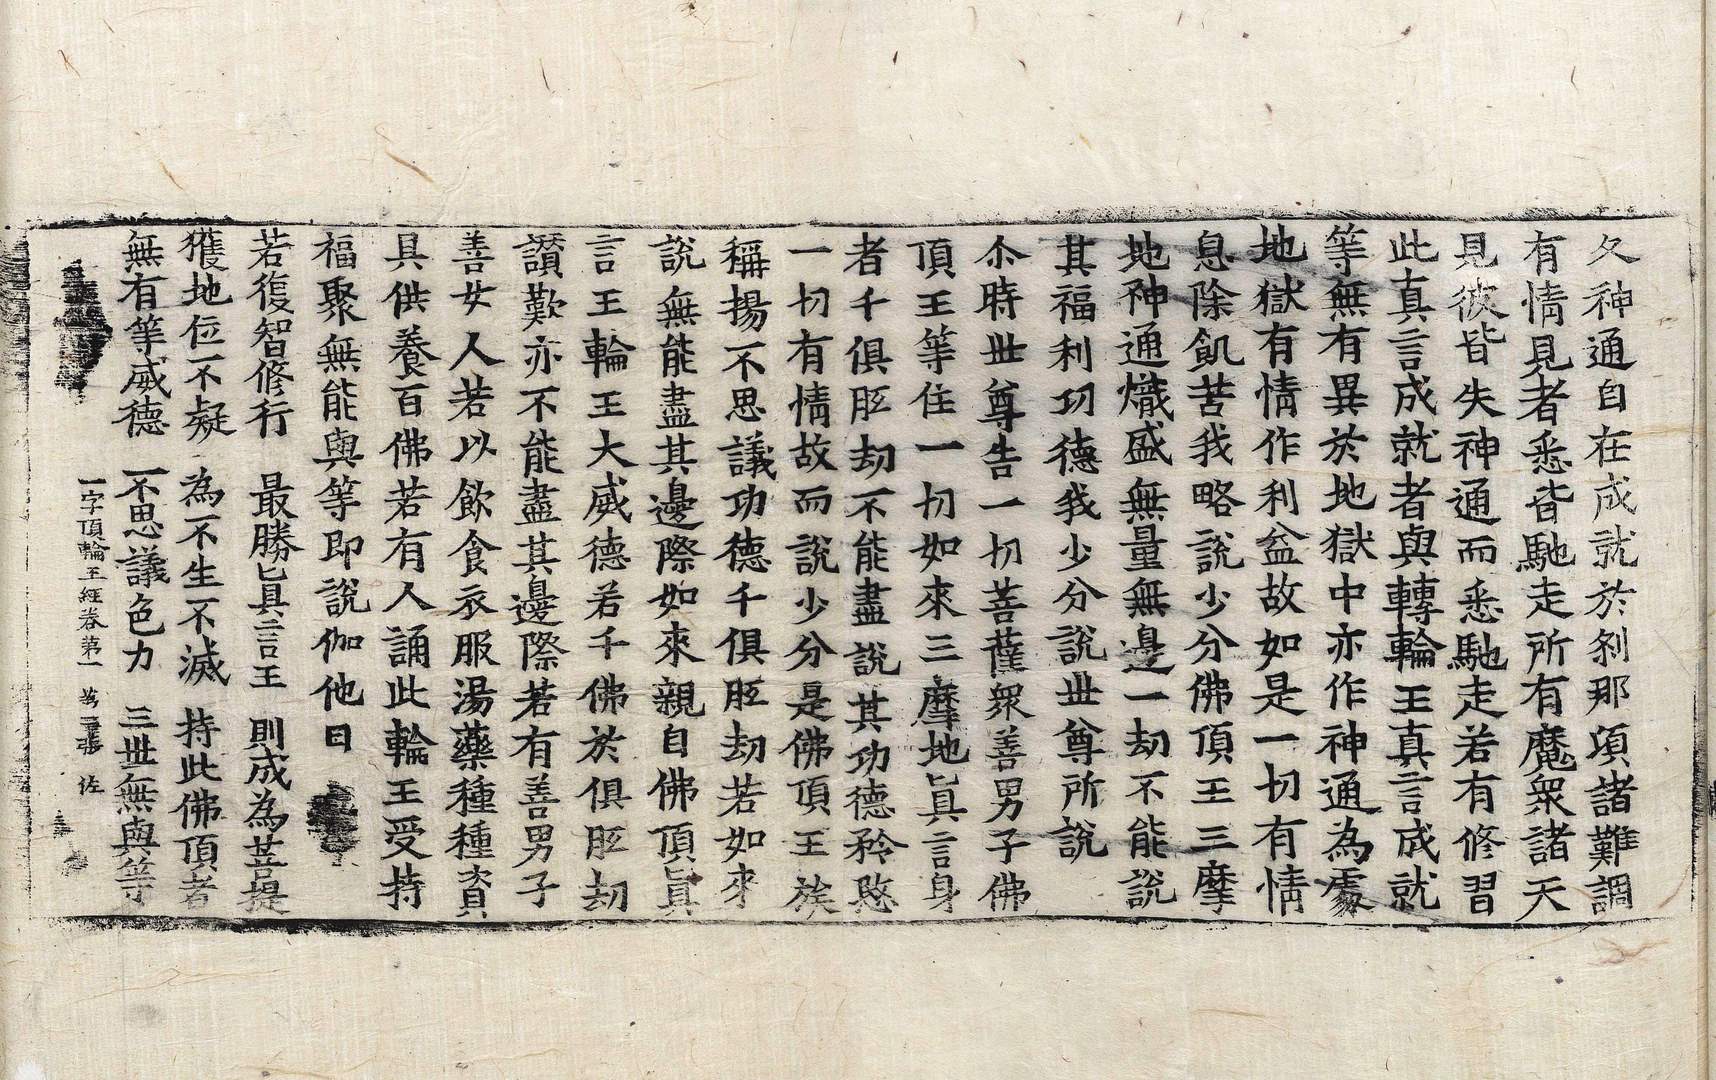 久神通自在成就於刹那頃諸難調
有情見者悉皆馳走所有魔衆諸天
見彼皆失神通而悉馳走若有修習
此真言成就者與轉輪王真言成就
等無有異於地獄中亦作神通為處
地獄有情作利益故如是一切有情
息除飢苦我略說少分佛頂王三摩
地神通熾盛無量無邊一劫不能說
其福利功德我少分說世尊所說
尒時世尊告一切菩薩衆善男子佛
頂王等住一切如來三摩地眞言身
者千俱胝劫不能盡說其功德矜愍
一切有情故而說少分是佛頂王族
稱揚不思議功德千俱胝劫若如來
說無能盡其邊際如來親自佛頂眞
言王輪王大威德若千佛於俱胝劫
讃歎亦不能盡其邊際若有善男子
善女人若以飲食衣服湯藥種種資
具供養百佛若有人誦此輪王受持
福聚無能與等即說伽他曰
若復智修行　最勝眞言王　則成為菩提
獲地位不疑　為不生不滅　持此佛頂者
無有等威德　不思議色力　三世無與等
一字頂輪王經卷第一　第三張　佐